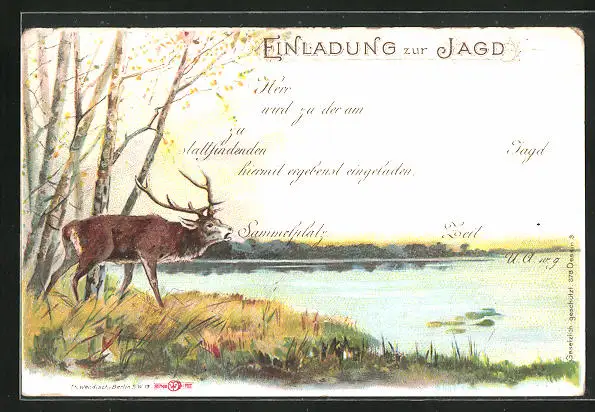 EINLADUNG ZUR JAGD
Herr
wird zu der am
zu
stattfindenden Jagd
hiermit ergebenst eingeladen.
Sammelplatz Zeit
U. A. w. g
Gesetzlich geschützt 378 Dessein 3
Berlin S.W. 13